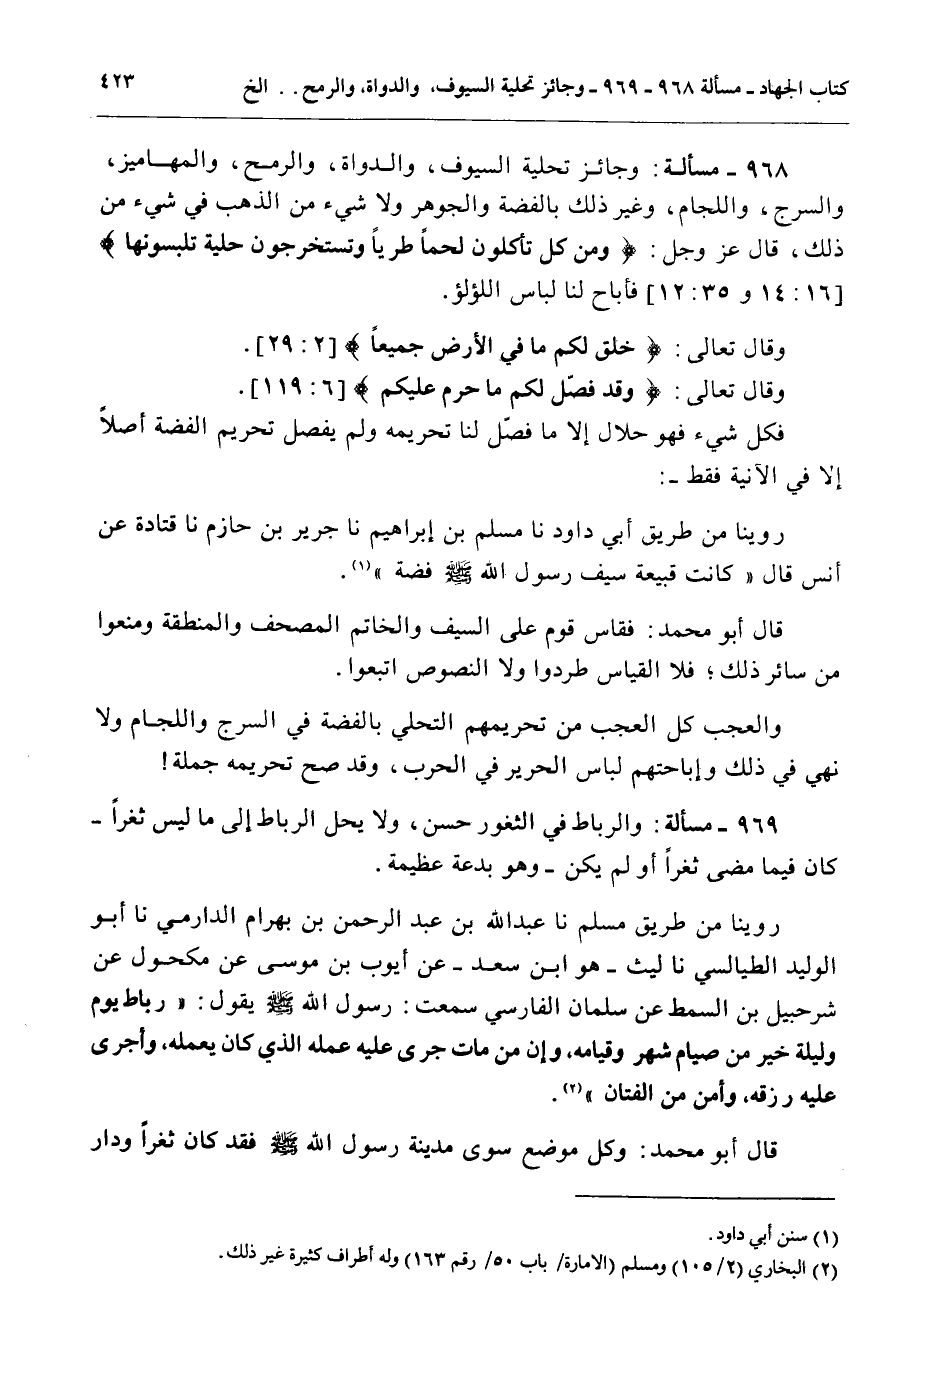 كتاب الجهاد ـ مسألة ٩٦٨ ـ ٩٦٩ ـ وجائز تحلية السيوف، والدواة، والرمح . . الخ ٤٢٣
٩٦٨ ـ مسألة : وجائز تحلية السيوف ، والدواة ، والرمح ، والمهاميز ،
والسرج ، واللجام ، وغير ذلك بالفضة والجوهر ولا شيء من الذهب في شيء من
ذلك ، قال عز وجل : ﴿ ومن كل تأكلون لحماً طرياً وتستخرجون حلية تلبسونها ﴾
[١٦ : ١٤ و ٣٥ : ١٢] فأباح لنا لباس اللؤلؤ .
وقال تعالى : ﴿ خلق لكم ما في الأرض جميعاً ﴾ [٢ : ٢٩] .
وقال تعالى : ﴿ وقد فصّل لكم ما حرم عليكم ﴾ [٦ : ١١٩] .
فكل شيء فهو حلال إلا ما فصّل لنا تحريمه ولم يفصل تحريم الفضة أصلاً
إلا في الآنية فقط ـ :
روينا من طريق أبي داود نا مسلم بن إبراهيم نا جرير بن حازم نا قتادة عن
أنس قال « كانت قبيعة سيف رسول الله ﷺ فضة »(١) .
قال أبو محمد : فقاس قوم على السيف والخاتم المصحف والمنطقة ومنعوا
من سائر ذلك ؛ فلا القياس طردوا ولا النصوص اتبعوا .
والعجب كل العجب من تحريمهم التحلي بالفضة في السرج واللجام ولا
نهي في ذلك وإباحتهم لباس الحرير في الحرب ، وقد صح تحريمه جملة !
٩٦٩ ـ مسألة : والرباط في الثغور حسن ، ولا يحل الرباط إلى ما ليس ثغراً ـ
كان فيما مضى ثغراً أو لم يكن ـ وهو بدعة عظيمة .
روينا من طريق مسلم نا عبدالله بن عبد الرحمن بن بهرام الدارمي نا أبو
الوليد الطيالسي نا ليث ـ هو ابن سعد ـ عن أيوب بن موسى عن مكحول عن
شرحبيل بن السمط عن سلمان الفارسي سمعت : رسول الله ﷺ يقول : « رباط يوم
وليلة خير من صيام شهر وقيامه، وإن من مات جرى عليه عمله الذي كان يعمله، وأجرى
عليه رزقه، وأمن من الفتان »(٢) .
قال أبو محمد : وكل موضع سوى مدينة رسول الله ﷺ فقد كان ثغراً ودار
(١) سنن أبي داود .
(٢) البخاري (٢/ ١٠٥) ومسلم (الامارة/ باب ٥٠/ رقم ١٦٣) وله أطراف كثيرة غير ذلك .